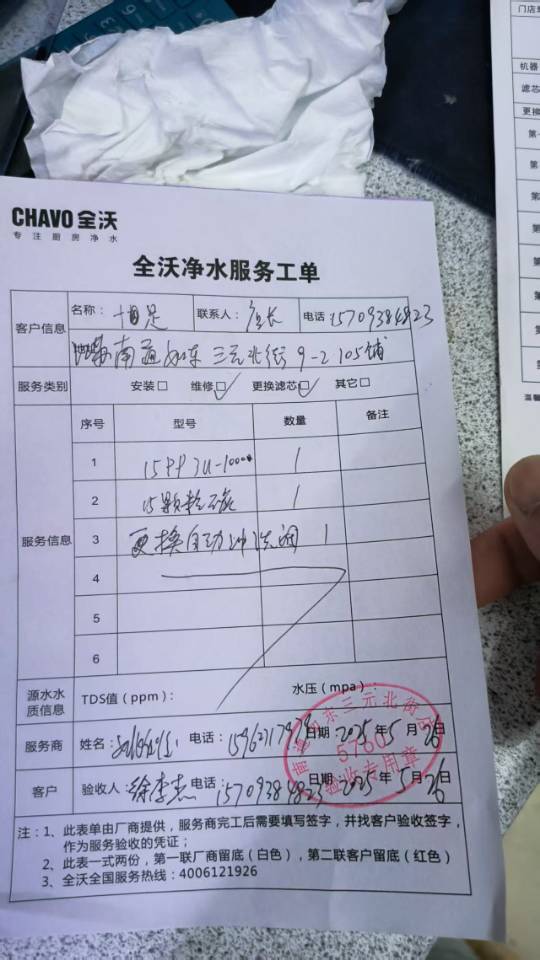 CHAVO 全沃
专注厨房净水
全沃净水服务工单
客户信息
名称：十足 联系人：店长 电话 15709384823
地址 南通如东 三元北街 9-2 105铺
服务类别 安装□ 维修☑ 更换滤芯☑ 其它□
服务信息
序号 型号 数量 备注
1 15PP 1
2 15颗粒碳 1
3 更换自动冲洗阀 1
4
5
6
源水水质信息 TDS值（ppm）： 水压（mpa）：
服务商 姓名： 电话： 日期：2025年5月26日
客户 验收人：徐李杰 电话：15709384823 日期：2025年5月26日
5760
验收专用章
注：1、此表单由厂商提供，服务商完工后需要填写签字，并找客户验收签字，
作为服务验收的凭证；
2、此表一式两份，第一联厂商留底（白色），第二联客户留底（红色）
3、全沃全国服务热线：4006121926
机器
滤芯
更换